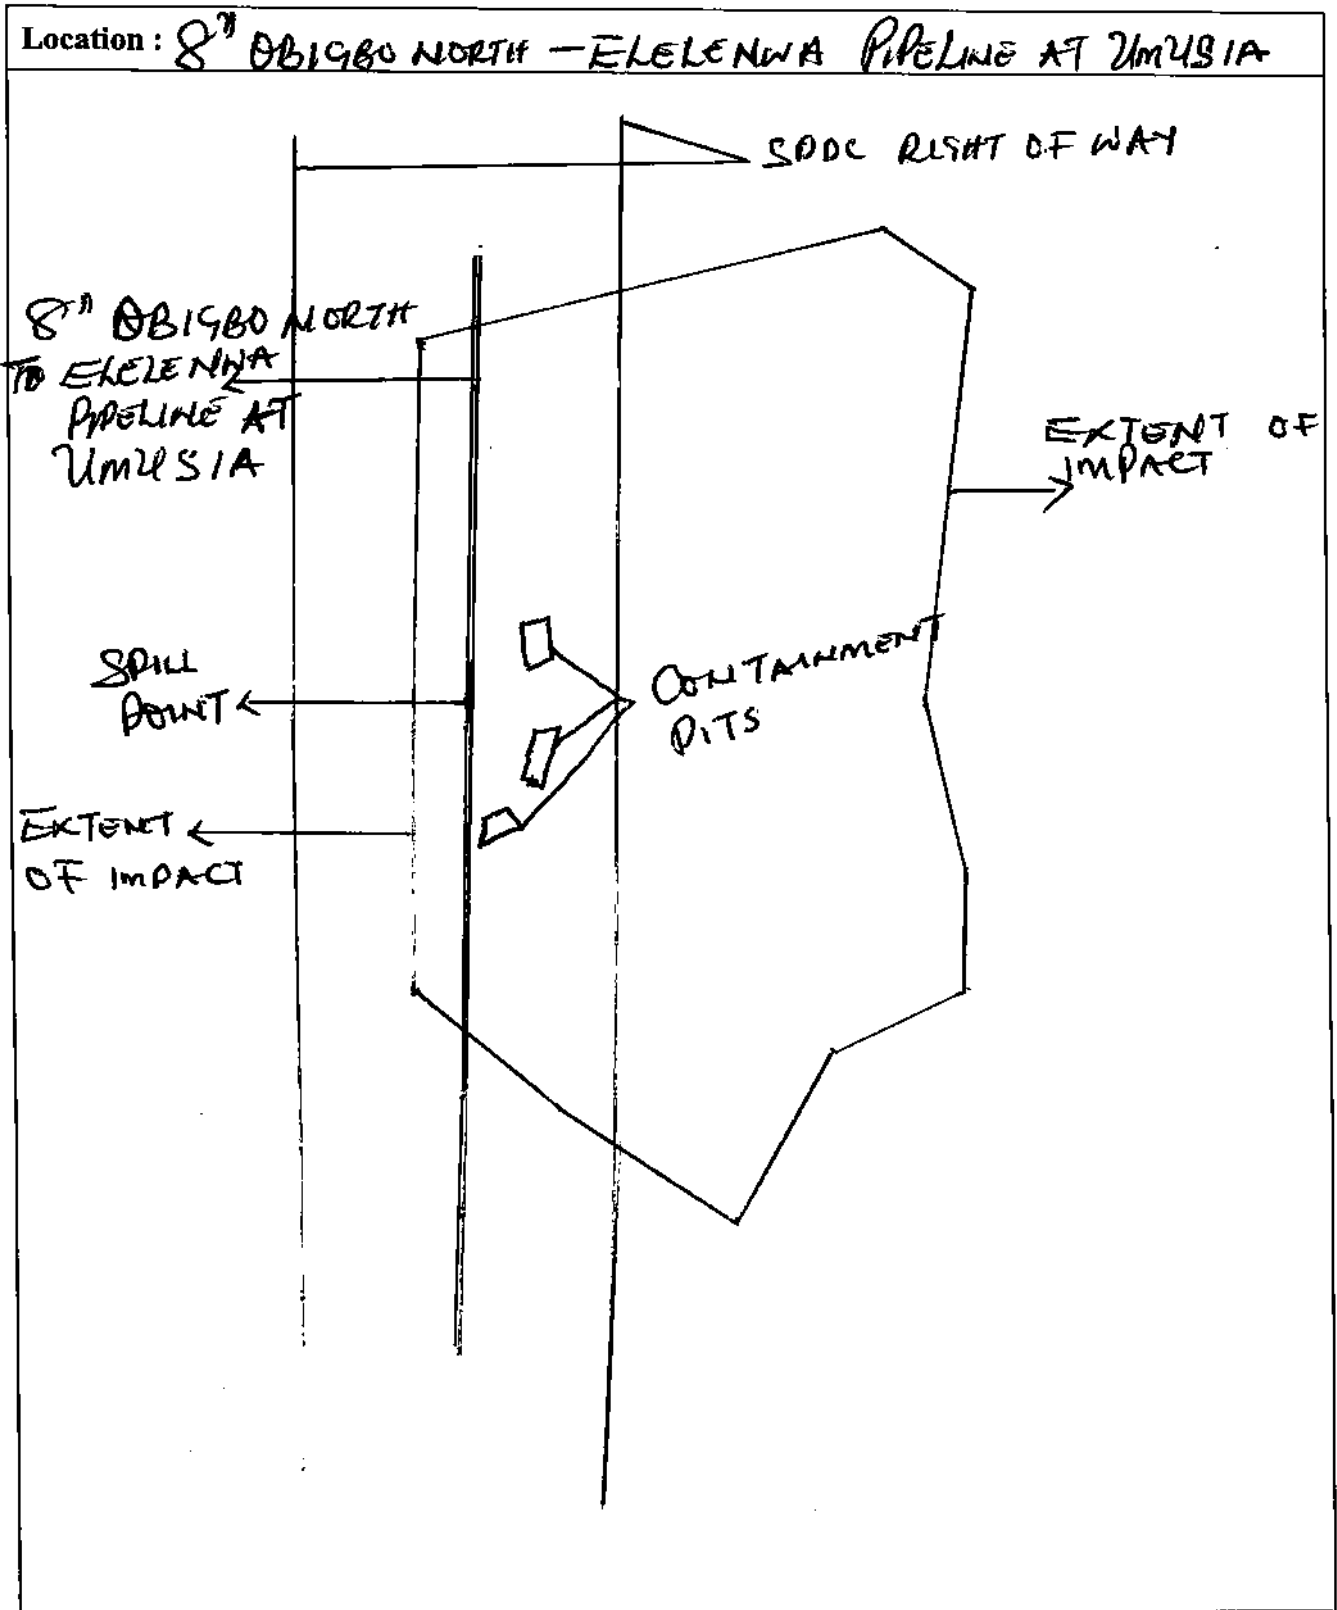 Location : 8" OBIGBO NORTH - ELELENWA PIPELINE AT UMUSIA
SPDC RIGHT OF WAY
8" OBIGBO NORTH
TO ELELENWA
PIPELINE AT
UMUSIA
EXTENT OF
IMPACT
SPILL
POINT
CONTAINMENT
PITS
EXTENT
OF IMPACT